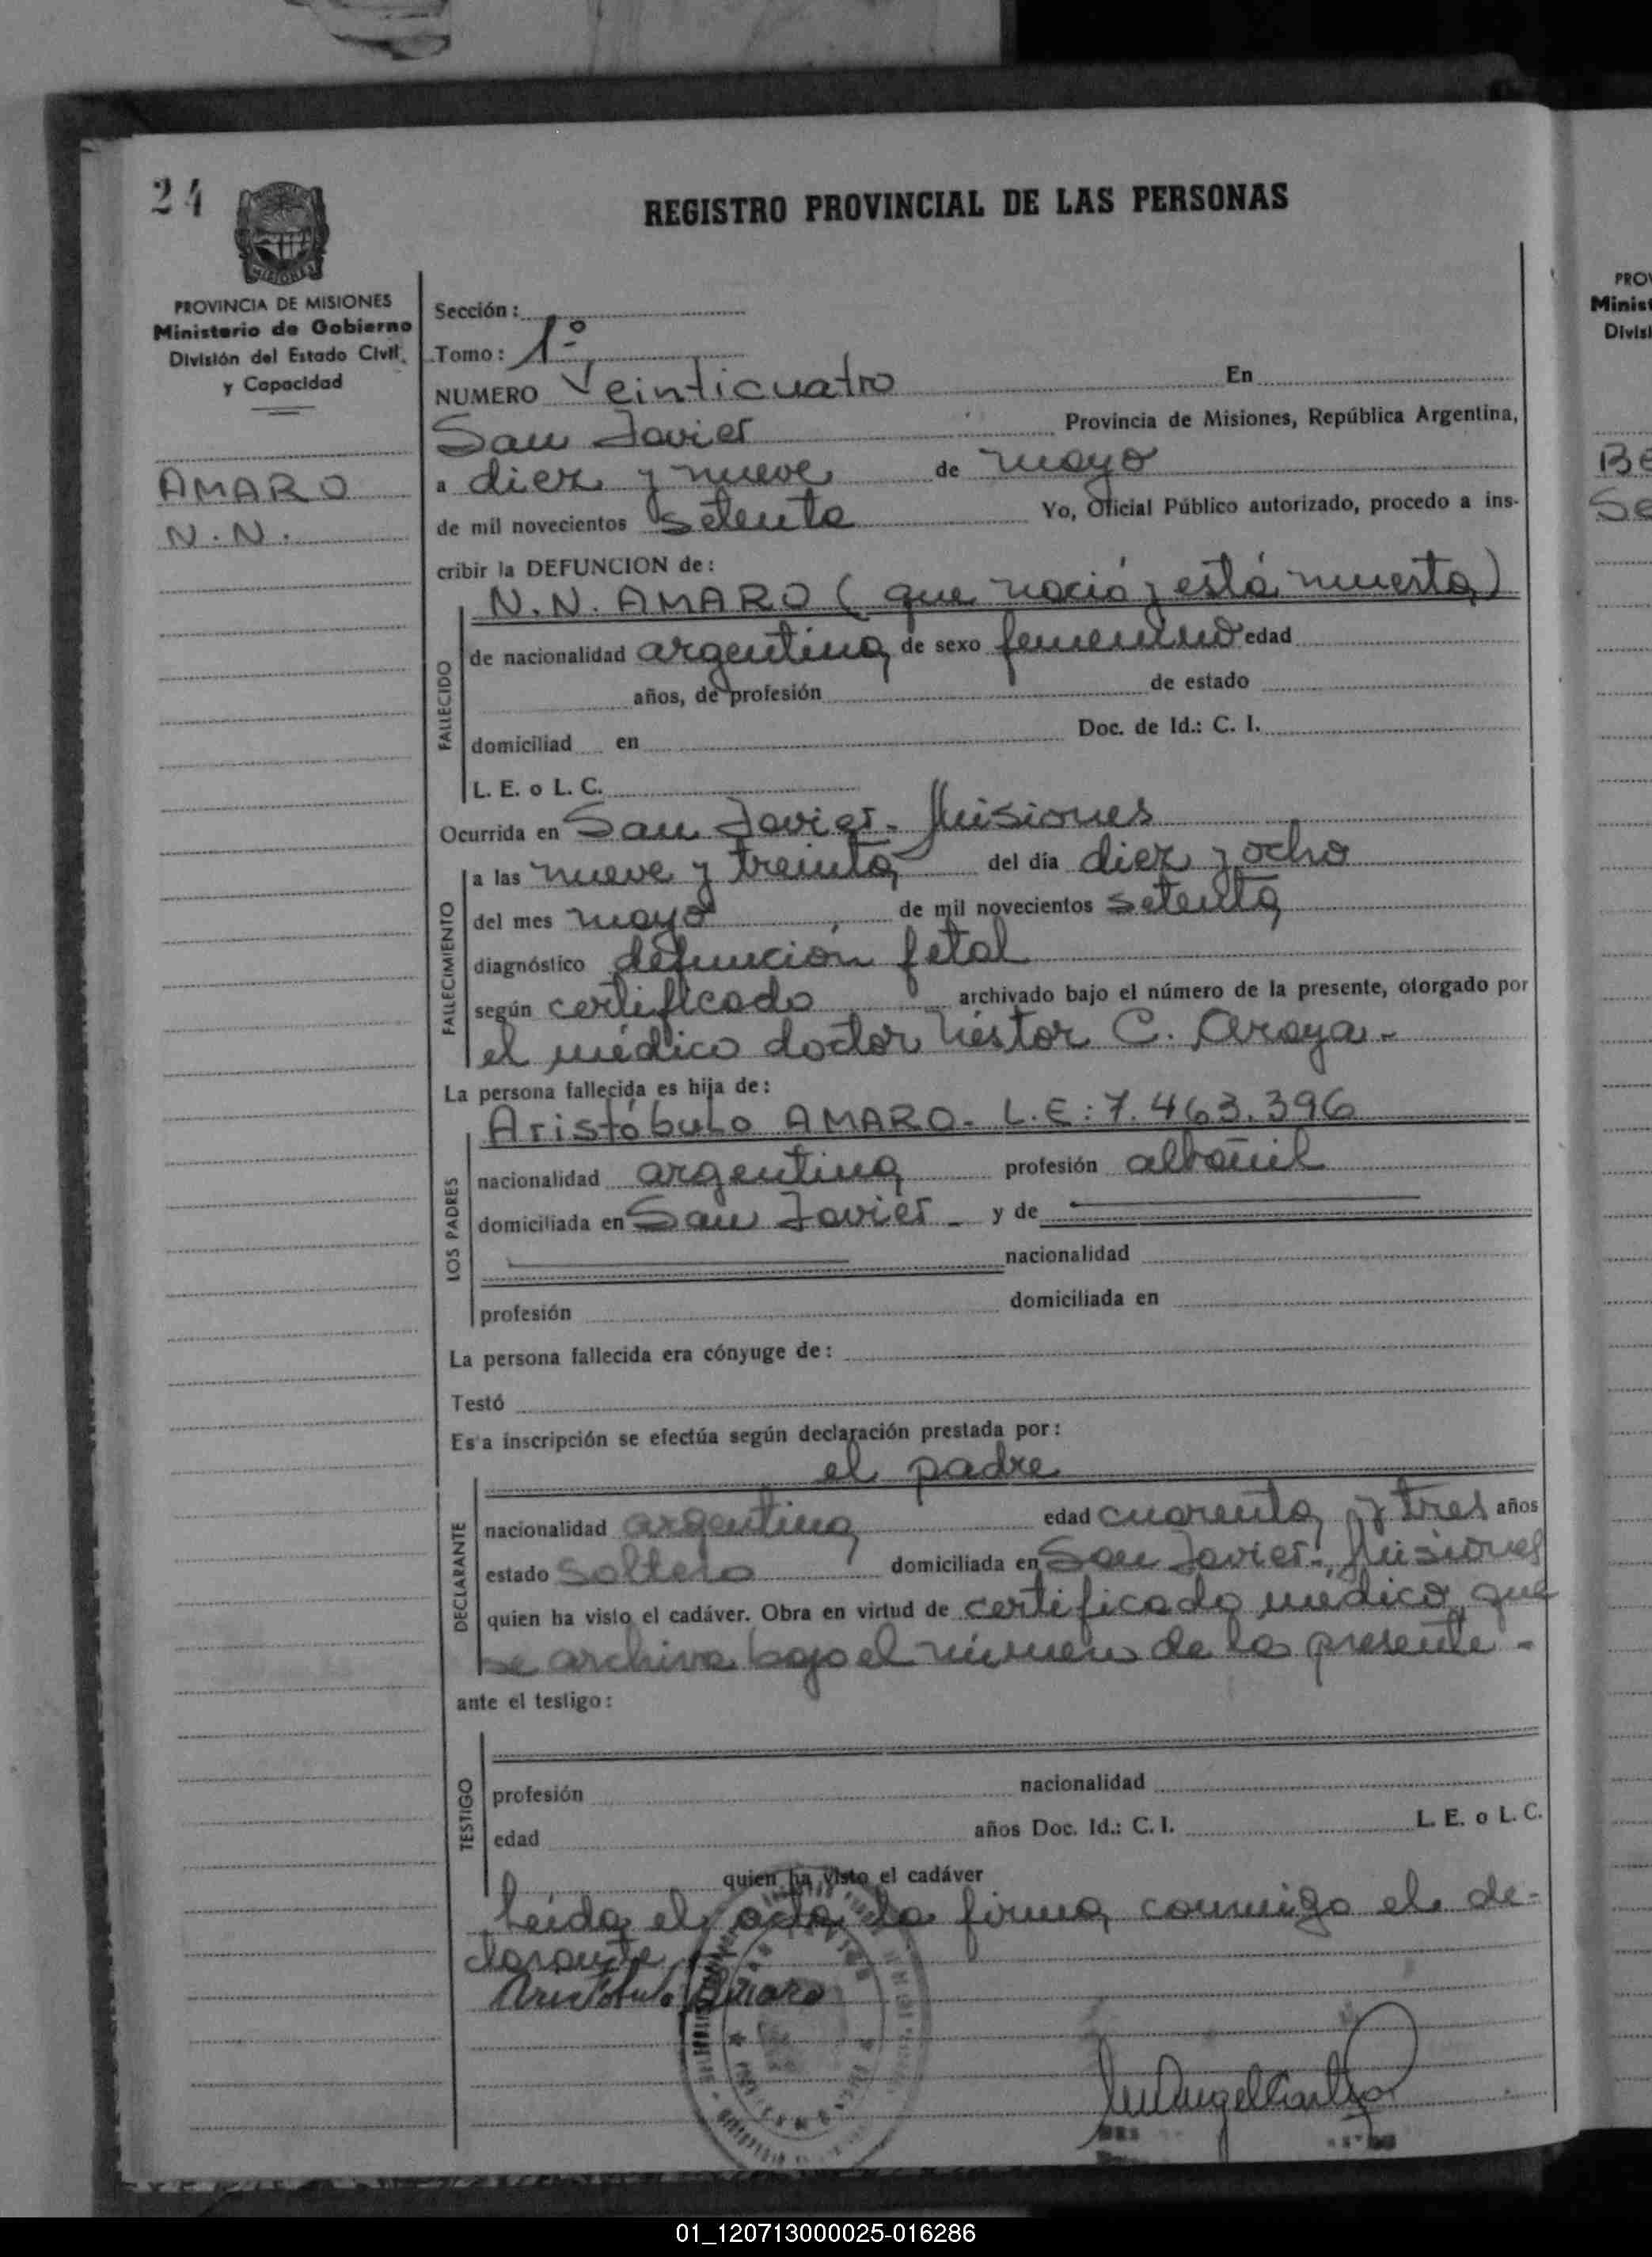 24
REGISTRO PROVINCIAL DE LAS PERSONAS
PROVINCIA DE MISIONES
Ministerio de Gobierno
División del Estado Civil
y Capacidad
AMARO
N.N.
Sección:
Tomo: 1º
NUMERO Veinticuatro En
San Javier Provincia de Misiones, República Argentina,
a diez y nueve de mayo
de mil novecientos setenta Yo, Oficial Público autorizado, procedo a ins-
cribir la DEFUNCION de:
N.N. AMARO (que nació y está muerta)
FALLECIDO
de nacionalidad argentina de sexo femenino edad
años, de profesión de estado
domiciliad en Doc. de Id.: C. I.
L. E. o L. C.
Ocurrida en San Javier - Misiones
FALLECIMIENTO
a las nueve y treinta del día diez y ocho
del mes mayo de mil novecientos setenta
diagnóstico defunción fetal
según certificado archivado bajo el número de la presente, otorgado por
el médico doctor Néstor C. Araya -
La persona fallecida es hija de:
Aristóbulo AMARO - L.E: 7.463.396
LOS PADRES
nacionalidad argentina profesión albañil
domiciliada en San Javier - y de
nacionalidad
profesión domiciliada en
La persona fallecida era cónyuge de:
Testó
Es a inscripción se efectúa según declaración prestada por:
el padre
DECLARANTE
nacionalidad argentina edad cuarenta y tres años
estado soltero domiciliada en San Javier - Misiones
quien ha visto el cadáver. Obra en virtud de certificado médico que
se archiva bajo el número de la presente -
ante el testigo:
TESTIGO
profesión nacionalidad
edad años Doc. Id.: C. I. L. E. o L. C.
quien ha visto el cadáver
Leída el acta la firma conmigo el de-
clarante
Aristobulo Amaro
PROV
Minist
Divisi
BE
Se
01_120713000025-016286